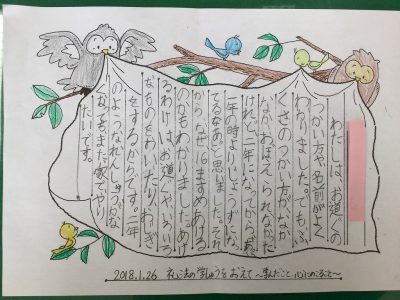 わたしは、お道ぐの
つかい方や、名前がよく
わかりました。でもふ
くさのつかい方がなか
なかおぼえられなかった
けれど、二年になってから、あ、
一年の時よりじょうずになっ
てるなあと思いました。それ
から、なぜ16ますめあける
のかもわかりました。あけ
るわけは、お道ぐや、いろい
なものをおいたり、おじぎ
をするからです。三年
のようなれんしゅうがな
くなってもまた家でやり
たいです。
2018.1.26 礼法の学しゅうをおえて 〜学んだこと 心にのこること〜